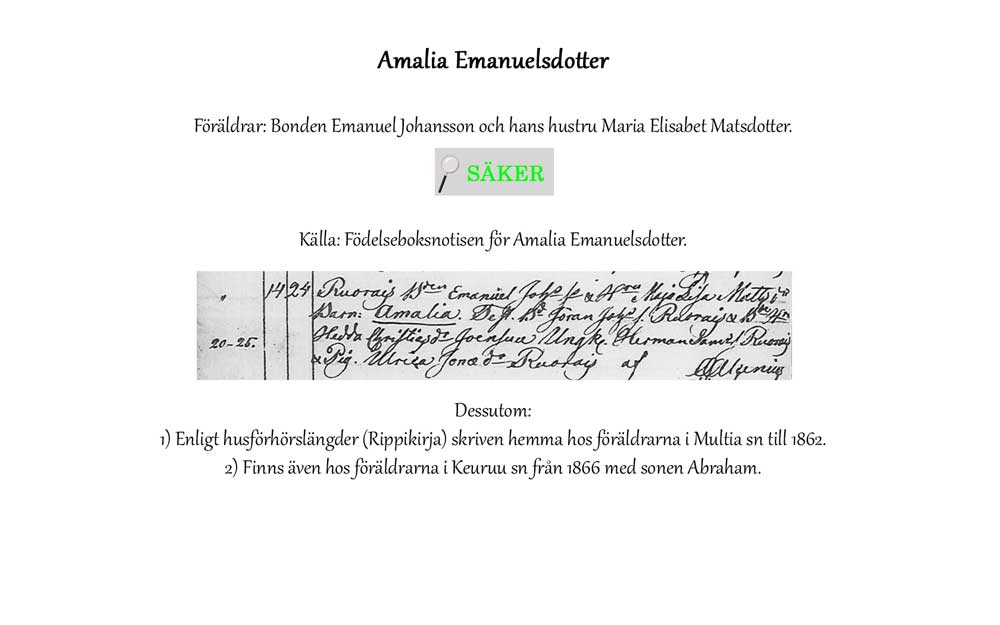 Amalia Emanuelsdotter
Föräldrar: Bonden Emanuel Johansson och hans hustru Maria Elisabet Matsdotter.
SÄKER
Källa: Födelseboksnotisen för Amalia Emanuelsdotter.
" 14 24 Ruorais Emanuel Joh Maja Lisa Matts
Barn: Amalia. Jöran Joh Ruorais &
20-25. Hedda Joensuu Ungk. Herman Ruorais
& Pig. Ulrica Ruorais af
Dessutom:
1) Enligt husförhörslängder (Rippikirja) skriven hemma hos föräldrarna i Multia sn till 1862.
2) Finns även hos föräldrarna i Keuruu sn från 1866 med sonen Abraham.